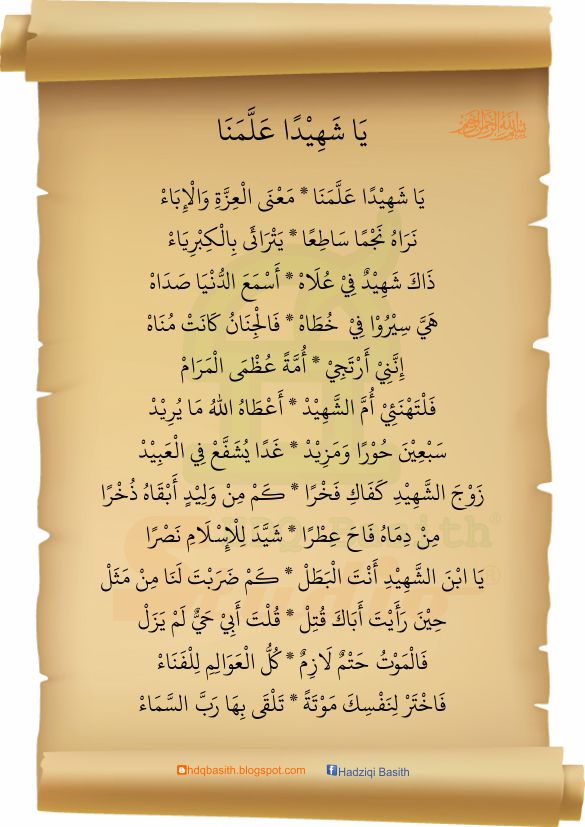 يَا شَهِيْدًا عَلَّمَنَا
يَا شَهِيْدًا عَلَّمَنَا * مَعْنَى الْعِزَّةِ وَالْإِبَاءْ
نَرَاهُ نَجْمًا سَاطِعًا * يَتْرَائَى بِالْكِبْرِيَاءْ
ذَاكَ شَهِيْدٌ فِيْ عُلَاهْ * أَسْمَعَ الدُّنْيَا صَدَاهْ
هَيَّ سِيْرُوْا فِيْ خُطَاهْ * فَالْجِنَانُ كَانَتْ مُنَاهْ
إِنَّنِيْ أَرْتَجِيْ * أُمَّةً عُظْمَى الْمَرَامْ
فَلْتَهْنَئِيْ أُمَّ الشَّهِيْدْ * أَعْطَاهُ اللهُ مَا يُرِيْدْ
سَبْعِيْنَ حُوْرًا وَمَزِيْدْ * غَدًا يُشَفَّعْ فِي الْعَبِيْدْ
زَوْجَ الشَّهِيْدِ كَفَاكِ فَخْرًا * كَمْ مِنْ وَلِيْدٍ أَبْقَاهُ ذُخْرًا
مِنْ دِمَاهُ فَاحَ عِطْرًا * شَيَّدَ لِلْإِسْلَامِ نَصْرًا
يَا ابْنَ الشَّهِيْدِ أَنْتَ الْبَطَلْ * كَمْ ضَرَبْتَ لَنَا مِنْ مَثَلْ
حِيْنَ رَأَيْتَ أَبَاكَ قُتِلْ * قُلْتَ أَبِيْ حَيٌّ لَمْ يَزَلْ
فَالْمَوْتُ حَتْمٌ لَازِمٌ * كُلُّ الْعَوَالِمِ لِلْفَنَاءْ
فَاخْتَرْ لِنَفْسِكَ مَوْتَةً * تَلْقَى بِهَا رَبَّ السَّمَاءْ
hdqbasith.blogspot.com Hadziqi Basith